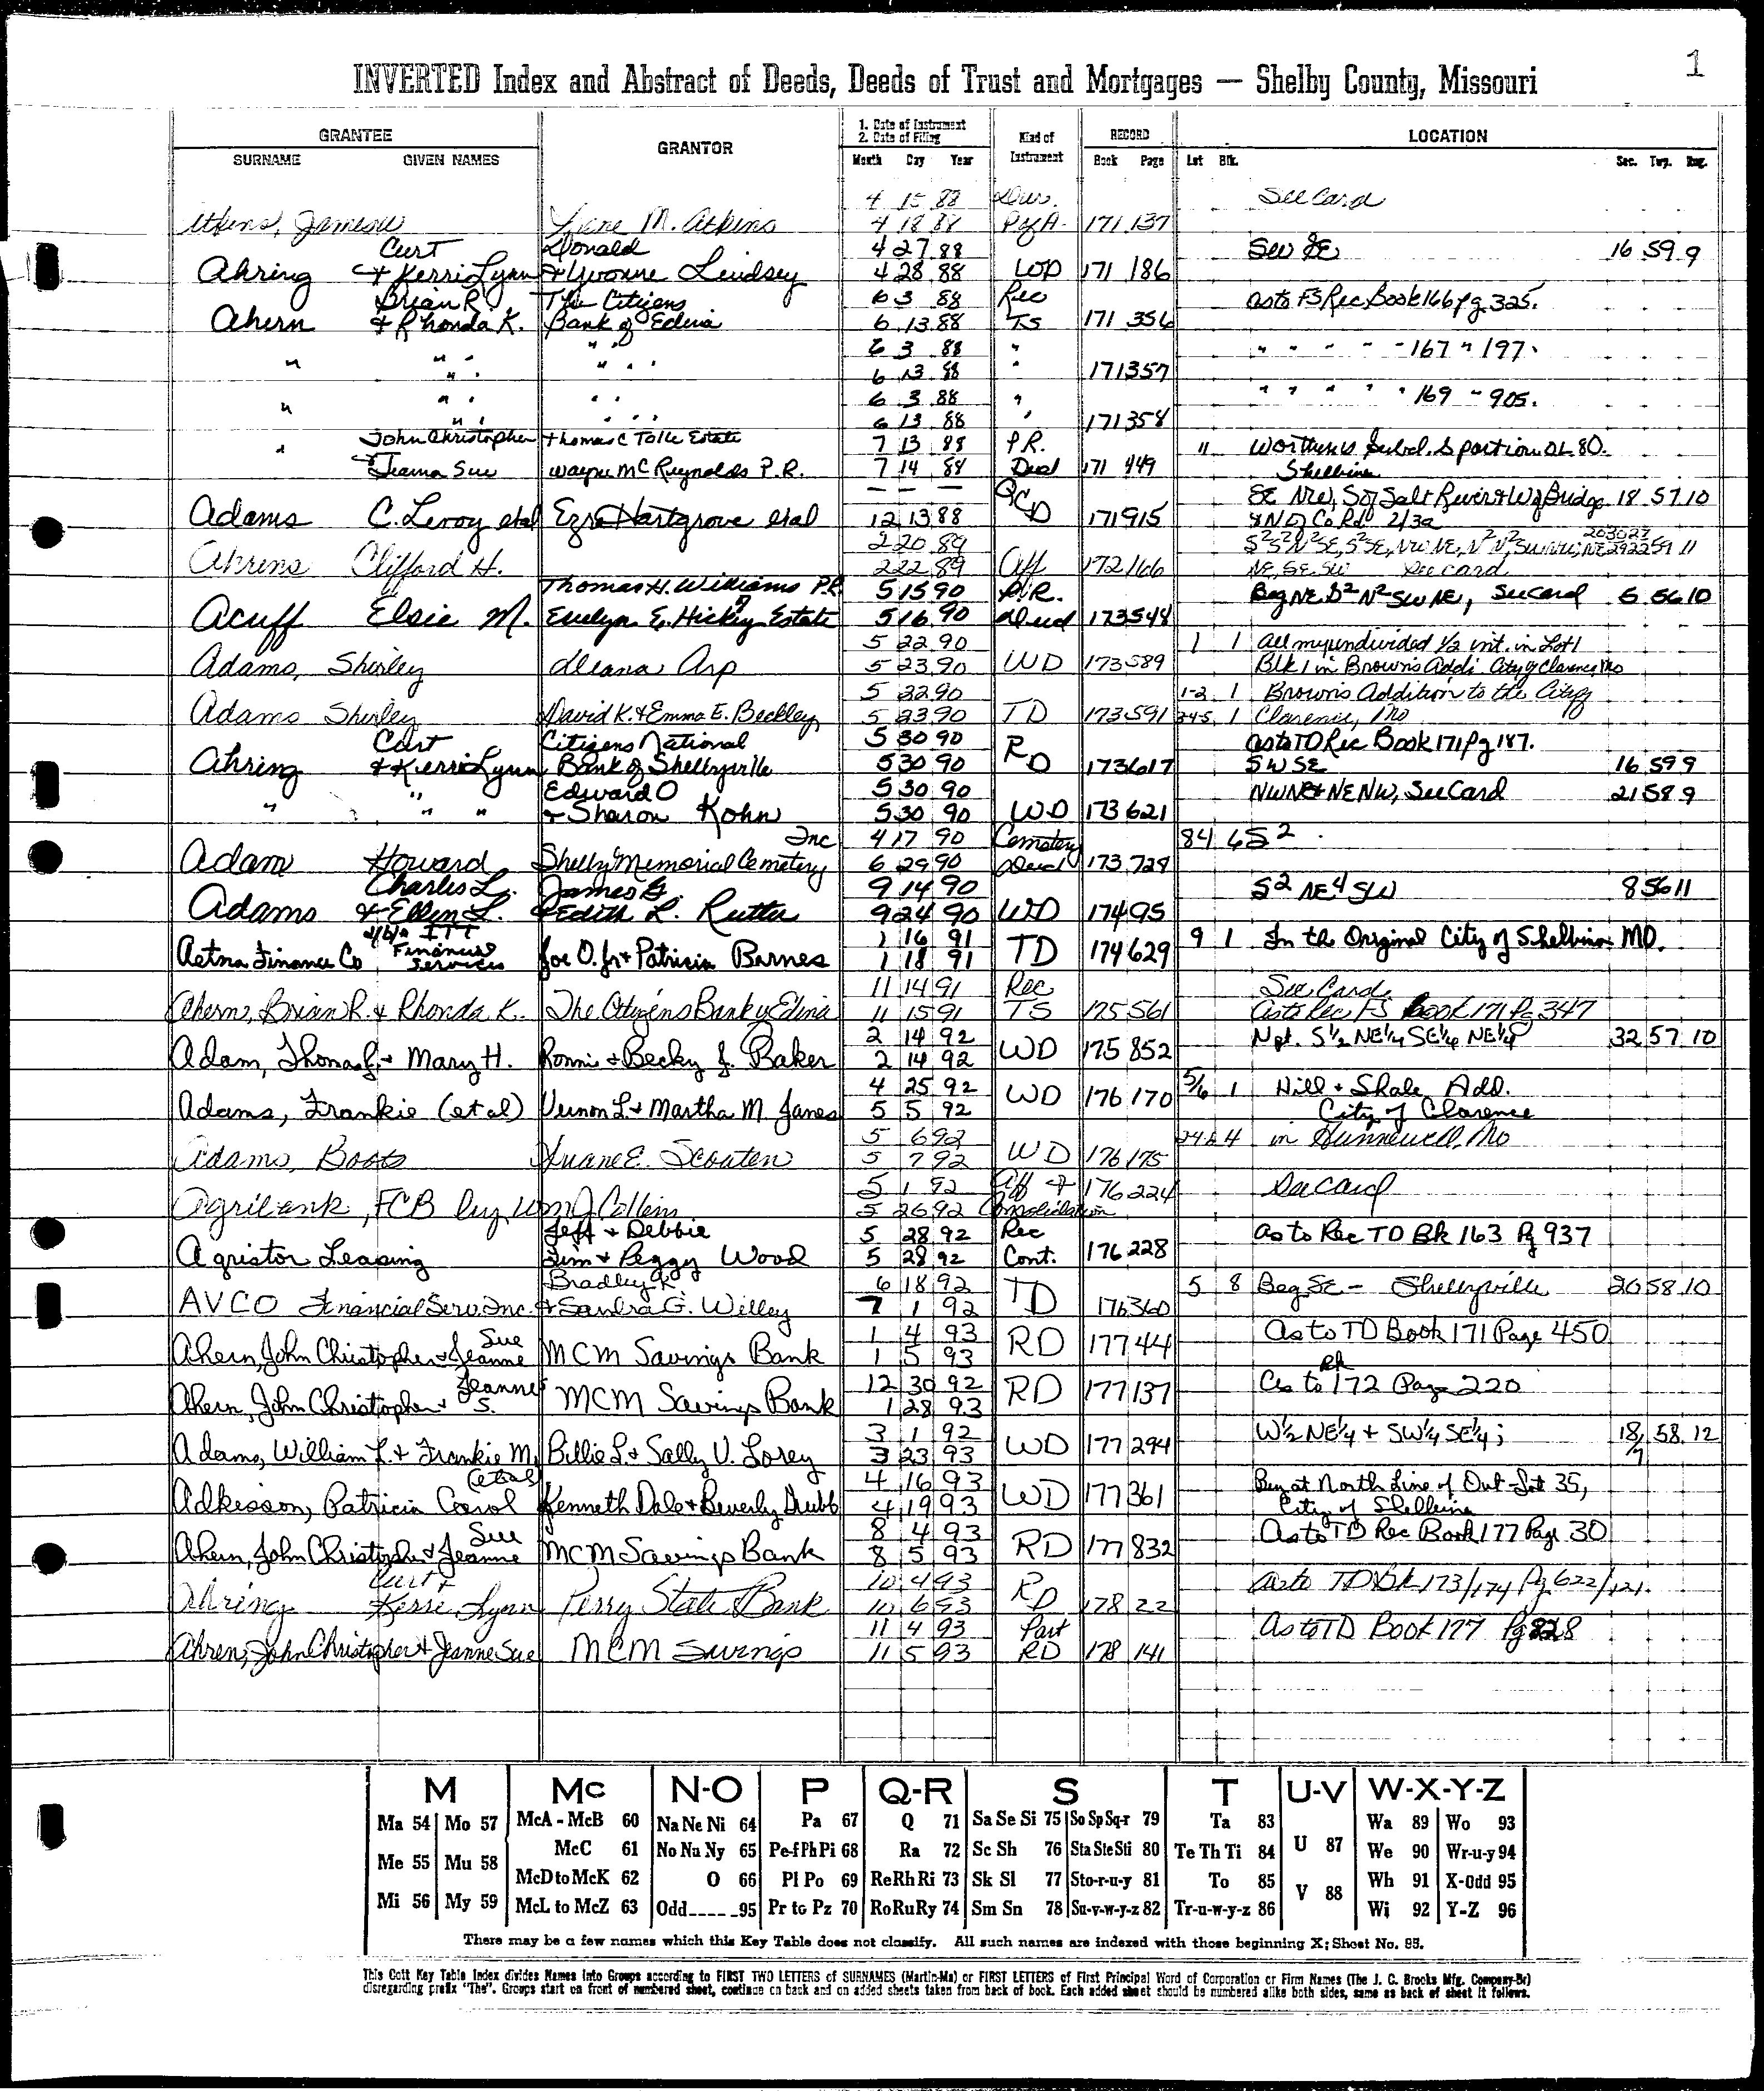 1
INVERTED Index and Abstract of Deeds, Deeds of Trust and Mortgages — Shelby County, Missouri
GRANTEE GRANTOR 1. Date of Instrument 2. Date of Filing Kind of Instrument RECORD LOCATION
SURNAME GIVEN NAMES Month Day Year Book Page Lot Blk. Sec. Twp. Rng.
4 15 88 See Card
Atkins, M. Atkins 4 18 88 Pof A. 171 137
Curt Donald 4 27 88 SW SE 16 59 9
Ahring & Kerri Lynn & Yvonne Lindsey 4 28 88 WD 171 186
Brian R. The Citizens 6 3 88 Rec as to FS Rec Book 166 Pg 325.
Ahern & Rhonda K. Bank of Edina 6 13 88 TS 171 356
" " " 6 3 88 " " " " " " 167 " 197.
" " 6 13 88 " 171 357
" " " 6 3 88 " " " " " " 169 " 905.
" " 6 13 88 " 171 358
" John Christopher Thomas C Tolle Estate 7 13 88 P.R. 11 Worthens Subd. S portion OL 80.
Jeanna Sue Wayne McReynolds P.R. 7 14 88 Deed 171 449 Shelbina
— — — QC SE NW, S of Salt River & W of Bridge 18 57 10
Adams C. Leroy etal Ezra Hartgrove etal 12 13 88 D 171 915 & N of Co Rd 213a
2 20 89
Ahrens Clifford H. 2 22 89 Aff 172 166 NE, SE SW See card
Thomas H. Williams P.R. 5 15 90 P.R. Beg NE S2 N2 SW NE, See Card 5 56 10
Acuff Elsie M. Evelyn E. Hickey Estate 5 16 90 Deed 173 548
5 22 90 1 1 All my undivided 1/2 int. in Lot 1
Adams, Shirley Deana Arp 5 23 90 WD 173 589 Blk 1 in Brown's Addi. City of Clarence, Mo
5 22 90 1-2 1 Brown's Addition to the City of
Adams Shirley David K. & Emma E. Beckley 5 23 90 TD 173 591 3-4-5 1 Clarence, Mo
Curt Citizens National 5 30 90 R as to TD Rec Book 171 Pg 187.
Ahring & Kerri Lynn Bank of Shelbyville 5 30 90 D 173 617 SW SE 16 59 9
Edward O 5 30 90 NW NE & NE NW, See Card 21 58 9
" " " & Sharon Kohn 5 30 90 WD 173 621
Inc 4 17 90 Cemetery 84 65 2
Adam Howard Shelby Memorial Cemetery 6 29 90 Deed 173 729
Charles L. James G. 9 14 90 S2 NE4 SW 8 56 11
Adams & Ellen L. & Edith L. Rutter 9 24 90 WD 174 95
d/b/a ITT 1 16 91 9 1 In the Original City of Shelbina MO.
Aetna Finance Co Financial Services Joe O. Jr & Patricia Barnes 1 18 91 TD 174 629
11 14 91 Rec See Card
Ahern, Brian R. & Rhonda K. The Citizens Bank of Edina 11 15 91 TS 175 561 as to Rec FS Book 171 Pg 347
2 14 92 N pt. S 1/2 NE 1/4 SE 1/4 NE 1/4 32 57 10
Adam, Thomas J. & Mary H. Ronnie & Becky J. Baker 2 14 92 WD 175 852
4 25 92 5/6 1 Hill & Shale Add.
Adams, Frankie (etal) Vernon L. & Martha M. Janes 5 5 92 WD 176 170 City of Clarence
5 6 92 4 in Hunnewell, Mo
Adams, Boots Duane E. Scouten 5 7 92 WD 176 175
5 1 92 Aff & 176 224 See Card
Agribank, FCB by Wm J Collins 5 26 92 Consolidation
Jeff & Debbie 5 28 92 Rec as to Rec TD Bk 163 Pg 937
Agristor Leasing Jim & Peggy Wood 5 28 92 Cont. 176 228
Bradley K. 6 18 92 5 8 Beg SE - Shelbyville 20 58 10
AVCO Financial Serv. Inc. & Sandra G. Willey 7 1 92 TD 176 360
Sue 1 4 93 As to TD Book 171 Page 450
Ahern, John Christopher & Jeanne MCM Savings Bank 1 5 93 RD 177 44
Jeanne 12 30 92 As to Bk 172 Page 220
Ahern, John Christopher & S. MCM Savings Bank 1 28 93 RD 177 137
3 1 92 W 1/2 NE 1/4 & SW 1/4 SE 1/4; 18/7 58 12
Adams, William L. & Frankie M. Billie L. & Sally V. Lorey 3 23 93 WD 177 294
(etal) 4 16 93 Beg at North Line of Out Lot 35,
Adkisson, Patricia Carol Kenneth Dale & Beverly Grubb 4 19 93 WD 177 361 City of Shelbina
Sue 8 4 93 As to TD Rec Book 177 Page 30
Ahern, John Christopher & Jeanne MCM Savings Bank 8 5 93 RD 177 832
Curt & 10 4 93 As to TD Bk 173/174 Pg 622/121.
Ahring Kerri Lynn Perry State Bank 10 6 93 RD 178 22
11 4 93 Part As to TD Book 177 Pg 828
Ahren, John Christopher & Jeanne Sue MCM Savings 11 5 93 RD 178 141
M Mc N-O P Q-R S T U-V W-X-Y-Z
Ma 54 Mo 57 McA - McB 60 Na Ne Ni 64 Pa 67 Q 71 Sa Se Si 75 So Sp Sq-r 79 Ta 83 U 87 Wa 89 Wo 93
Me 55 Mu 58 McC 61 No Nu Ny 65 Pe-f Ph Pi 68 Ra 72 Sc Sh 76 Sta Ste Sti 80 Te Th Ti 84 We 90 Wr-u-y 94
McD to McK 62 O 66 Pl Po 69 Re Rh Ri 73 Sk Sl 77 Sto-r-u-y 81 To 85 V 88 Wh 91 X-Odd 95
Mi 56 My 59 McL to McZ 63 Odd 95 Pr to Pz 70 Ro Ru Ry 74 Sm Sn 78 Su-v-w-y-z 82 Tr-u-w-y-z 86 Wi 92 Y-Z 96
There may be a few names which this Key Table does not classify. All such names are indexed with those beginning X; Sheet No. 95.
This Cott Key Table Index divides Names into Groups according to FIRST TWO LETTERS of SURNAMES (Martin-Ma) or FIRST LETTERS of First Principal Word of Corporation or Firm Names (The J. C. Brooks Mfg. Company-Br)
disregarding prefix "The". Groups start on front of numbered sheet, continue on back and on added sheets taken from back of book. Each added sheet should be numbered alike both sides, same as back of sheet it follows.